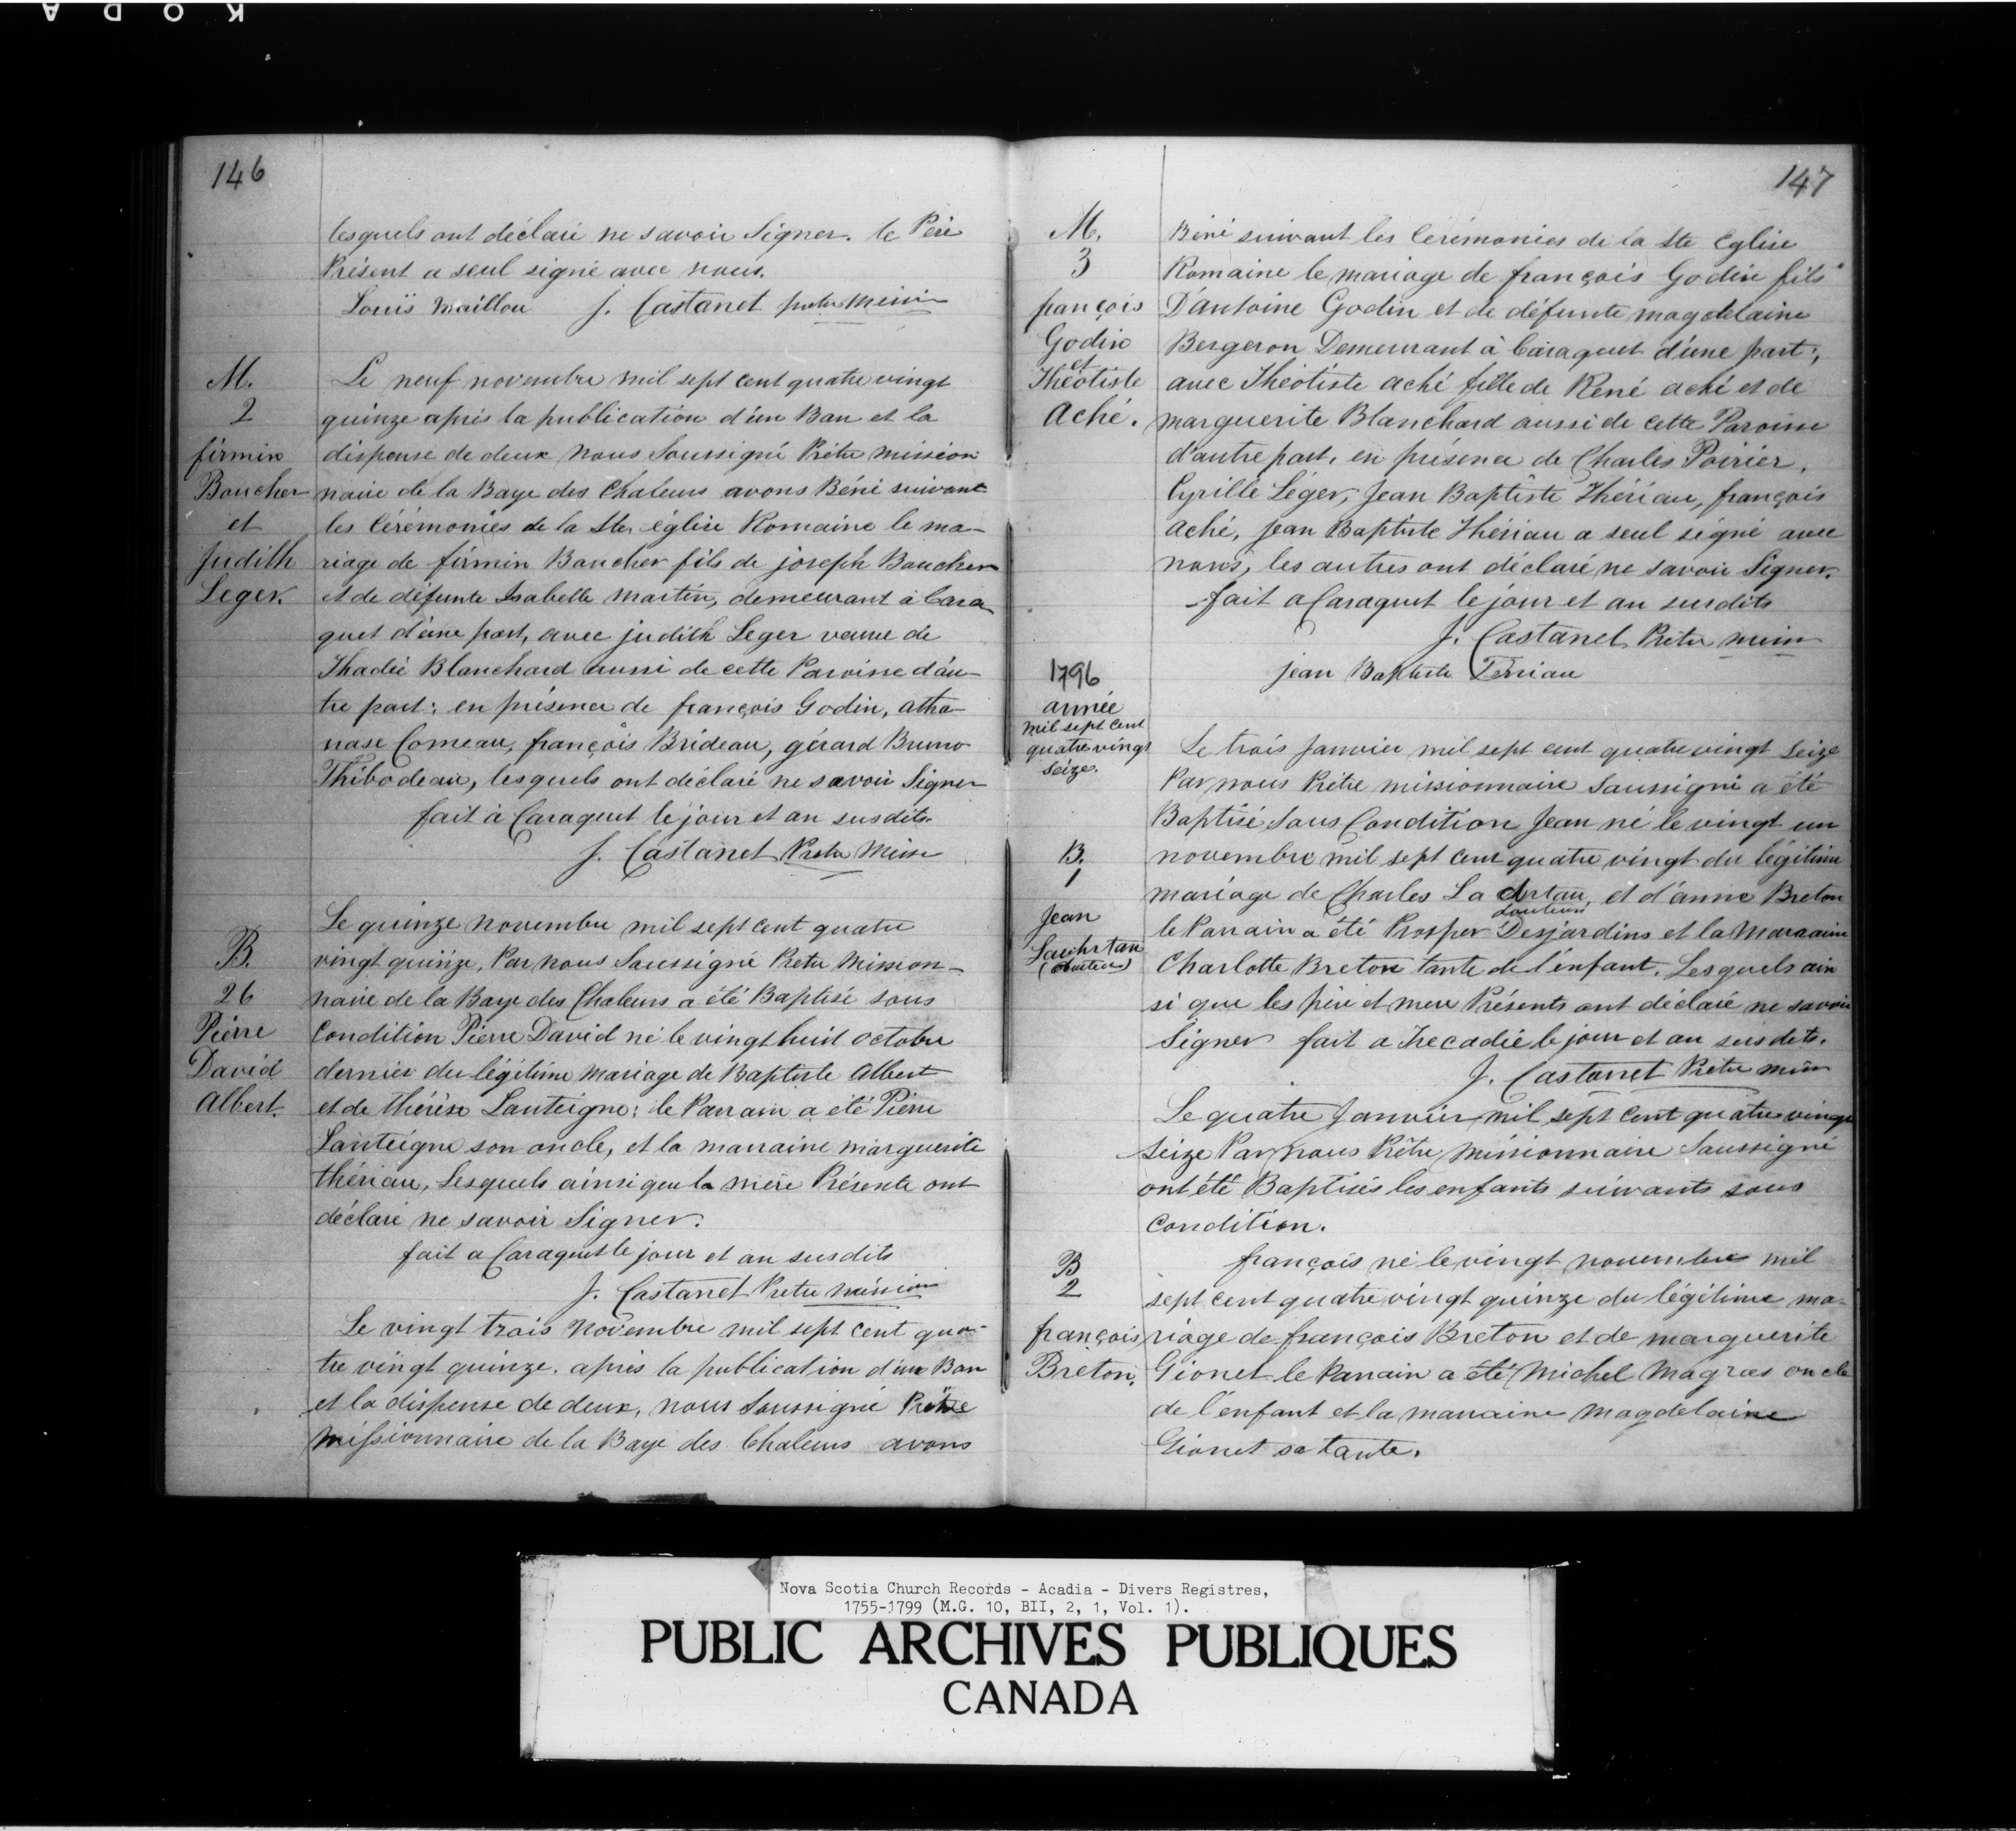 KODA
146
lesquels ont déclaré ne savoir Signer. le Père
Présent a seul signé avec nous.
Louis Maillou J. Castanet
M.
2
firmin
Boucher
et
Judith
Leger.
Le neuf novembre mil sept cent quatre vingt
quinze après la publication d'un Ban et la
dispense de deux nous Soussigné Prêtre mission
naire de la Baye des Chaleurs avons Béni suivant
les Cérémonies de la Ste église Romaine le ma-
riage de firmin Boucher fils de joseph Boucher
et de défunte Isabelle Martin, demeurant à Cara-
quet d'une part, avec judith Leger veuve de
Thadée Blanchard aussi de cette Paroisse d'au-
tre part; en présence de françois Godin, atha-
nase Comeau, françois Brideau, gérard Bruno
Thibodeau, lesquels ont déclaré ne savoir Signer
fait à Caraquet le jour et an susdits.
J. Castanet Prêtre Miss
B.
26
Pierre
David
Albert.
Le quinze novembre mil sept cent quatre
vingt quinze, Par nous Soussigné Pretre Mission-
naire de la Baye des Chaleurs a été Baptisé sous
Condition Pierre David né le vingt huit octobre
dernier du légitime Mariage de Baptiste Albert
et de thérèse Lanteigne: le Parrain a été Pierre
Lanteigne son oncle, et la marraine marguerite
thériau, Lesquels ainsi que la mère Présente ont
déclaré ne savoir Signer.
fait a Caraquet le jour et an susdits
J. Castanet Pretre
Le vingt trois Novembre mil sept cent qua-
tre vingt quinze. après la publication d'un Ban
et la dispense de deux, nous Soussigné Prêtre
Missionnaire de la Baye des Chaleurs avons
147
M.
3
françois
Godin
et
Théotiste
Aché.
Béni suivant les Cérémonies de la Ste Eglise
Romaine le mariage de françois Godin fils
D'antoine Godin et de défunte magdelaine
Bergeron Demeurant à Caraquet d'une part;
avec Théotiste aché fille de René aché et de
marguerite Blanchard aussi de cette Paroisse
d'autre part, en présence de Charles Poirier,
Cyrille Léger, Jean Baptiste Thériau, françois
aché, jean Baptiste Thériau a seul signé avec
nous, les autres ont déclaré ne savoir Signer.
fait a Caraquet le jour et an susdits
J. Castanet Pretre
jean Baptiste Terriau
1796
année
mil sept cent
quatre vingt
seize.
Le trois Janvier mil sept cent quatre vingt Seize
Par nous Prêtre missionnaire Soussigné a été
Baptisé Sous Condition Jean né le vingt un
novembre mil sept cent quatre vingt du légitime
mariage de Charles La et d'anne Breton
le Parrain a été Prosper Desjardins et la Marraine
Charlotte Breton tante de l'enfant. Lesquels ain
si que les père et mere Présents ont déclaré ne savoir
Signer fait a Trecadie le jour et an susdits.
J. Castanet Prêtre
B.
1
Jean
Le quatre Janvier mil sept cent quatre vingt
seize Par nous Prêtre Missionnaire Soussigné
ont été Baptisés les enfants suivants sous
condition.
B
2
françois
Breton.
françois né le vingt novembre mil
sept cent quatre vingt quinze du légitime ma-
riage de françois Breton et de marguerite
Gionet le Parrain a été Michel Magras oncle
de l'enfant et la marraine Magdelaine
Gionet sa tante.
Nova Scotia Church Records - Acadia - Divers Registres,
1755-1799 (M.G. 10, BII, 2, 1, Vol. 1).
PUBLIC ARCHIVES PUBLIQUES
CANADA